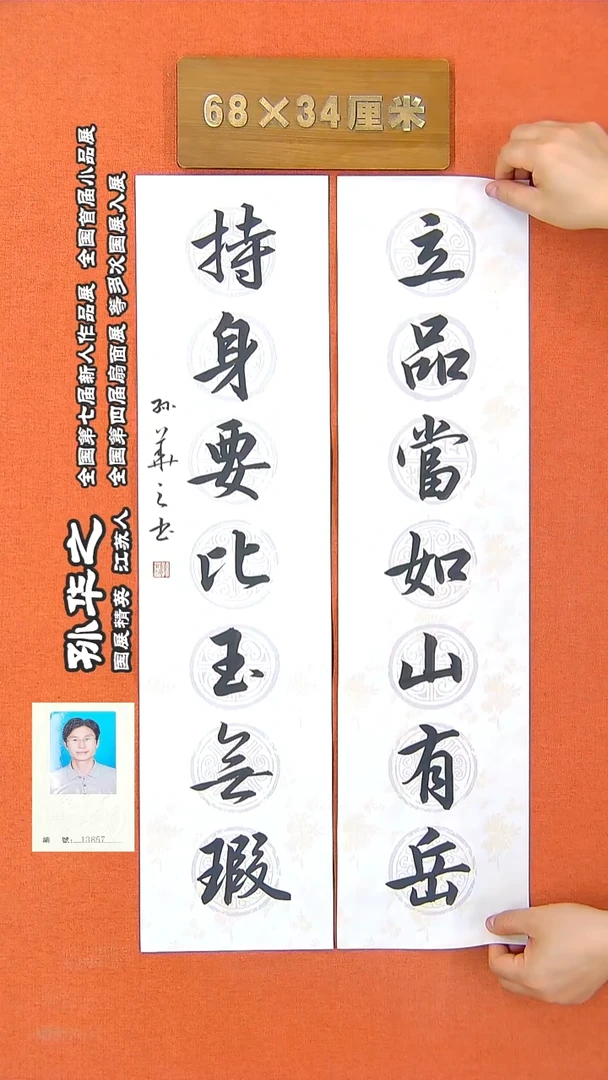 68×34厘米
立品當如山有岳
持身要比玉無瑕
孙華之书
全国第七届新人作品展 全国首届小品展
全国第四届扇面展 等多次国展入展
孙华之
国展精英 江苏人
編 號：13857